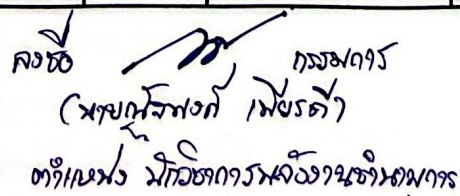 ลงชื่อ กรรมการ
(นายณัฐพงศ์ เพียรดี)
ตำแหน่ง นักวิชาการพลังงานชำนาญการ